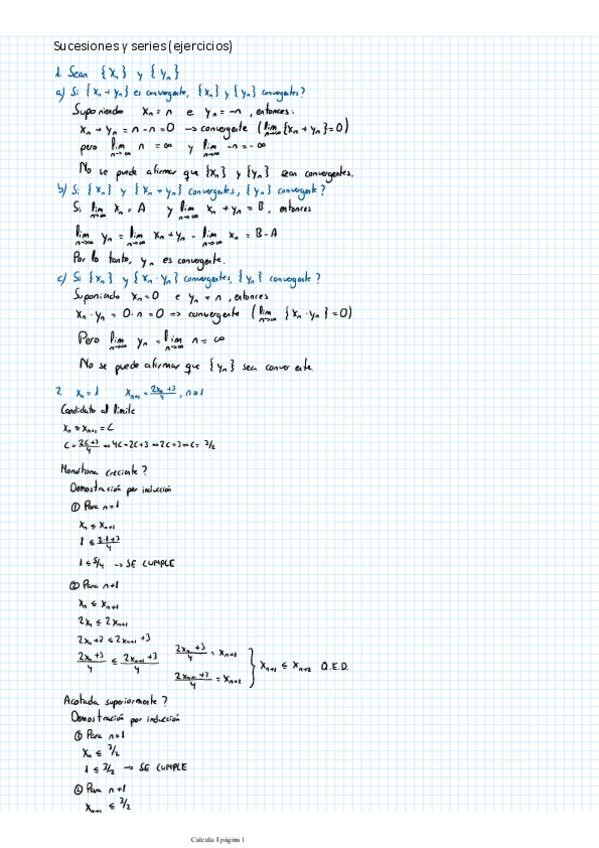 Sucesiones y series (ejercicios)
1. Sean {xₙ} y {yₙ}
a) Si {xₙ + yₙ} es convergente, ¿{xₙ} y {yₙ} convergentes?
Suponiendo xₙ = n e yₙ = -n, entonces:
xₙ + yₙ = n - n = 0 → convergente (lim n→∞ {xₙ + yₙ} = 0)
pero lim n→∞ n = ∞ y lim n→∞ -n = -∞
No se puede afirmar que {xₙ} y {yₙ} sean convergentes.
b) Si {xₙ} y {xₙ + yₙ} convergentes, {yₙ} convergente?
Si lim n→∞ xₙ = A y lim n→∞ xₙ + yₙ = B, entonces
lim n→∞ yₙ = lim n→∞ xₙ + yₙ - lim n→∞ xₙ = B - A
Por lo tanto, yₙ es convergente.
c) Si {xₙ} y {xₙ · yₙ} convergentes, {yₙ} convergente?
Suponiendo xₙ = 0 e yₙ = n, entonces
xₙ · yₙ = 0 · n = 0 => convergente (lim n→∞ {xₙ · yₙ} = 0)
Pero lim n→∞ yₙ = lim n→∞ n = ∞
No se puede afirmar que {yₙ} sea conver ente.
2. xₙ = 1 xₙ₊₁ = (2xₙ + 3)/4, n ≥ 1
Candidato al límite
xₙ = xₙ₊₁ = L
L = (2L + 3)/4 → 4L = 2L + 3 → 2L = 3 → L = 3/2
Monótona creciente?
Demostración por inducción
① Para n=1
xₙ ≤ xₙ₊₁
1 ≤ (2·1+3)/4
1 ≤ 5/4 → SE CUMPLE
② Para n+1
xₙ ≤ xₙ₊₁
2xₙ ≤ 2xₙ₊₁
2xₙ + 3 ≤ 2xₙ₊₁ + 3
(2xₙ + 3)/4 ≤ (2xₙ₊₁ + 3)/4 (2xₙ + 3)/4 = xₙ₊₁ (2xₙ₊₁ + 3)/4 = xₙ₊₂ } xₙ₊₁ ≤ xₙ₊₂ Q.E.D.
Acotada superiormente?
Demostración por inducción
① Para n=1
xₙ ≤ 3/2
1 ≤ 3/2 → SE CUMPLE
② Para n+1
xₙ₊₁ ≤ 3/2
Calculo I página 1